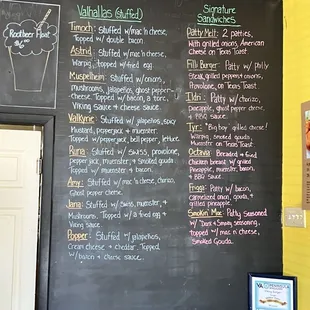 RootBeer Float
$6
Valhallas (Stuffed)
Timoch: Stuffed w/mac 'n cheese,
Topped w/ double bacon
Astrid: Stuffed w/mac 'n cheese,
topped w/ fried egg
Muspelheim: Stuffed w/ onions,
mushrooms, jalapeños, ghost pepper
cheese. Topped w/ bacon, a torc,
Viking Sauce + cheese sauce.
Valkyrie: Stuffed w/ jalapeños, spicy
Mustard, pepperjack + muenster.
Topped w/ pepperjack, bell pepper, lettuce
Runa: Stuffed w/ swiss, provolone,
pepper jack, muenster, + smoked gouda.
Topped w/ muenster + bacon.
Amy: Stuffed w/ mac 'n cheese, chorizo,
Ghost pepper cheese.
Jana: Stuffed w/ swiss, muenster, +
Mushrooms. Topped w/ a fried egg +
Viking Sauce
Popper: Stuffed w/ jalapeños,
Cream cheese + cheddar. Topped
w/ bacon + cheese sauce.
Signature
Sandwiches
Patty Melt: 2 patties,
with grilled onions, American
Cheese on Texas Toast
Filli Burger: Patty w/ philly
Steak, grilled peppers + onions,
Provolone, on Texas Toast.
Ildri: Patty w/ chorizo,
Pineapple, ghost pepper cheese,
+ BBQ Sauce
Tyr: "Big boy" grilled cheese!
smoked gouda,
Muenster on Texas Toast
Octavia: Breaded + fried
Chicken breast w/ grilled
Pineapple, muenster, bacon,
+ BBQ sauce
Frigga: Patty w/ bacon,
caramelized onion, gouda, +
grilled pineapple.
Smokin Mac: Patty seasoned
w/ Smoke Seasoning,
topped w/ mac n' cheese,
Smoked Gouda.